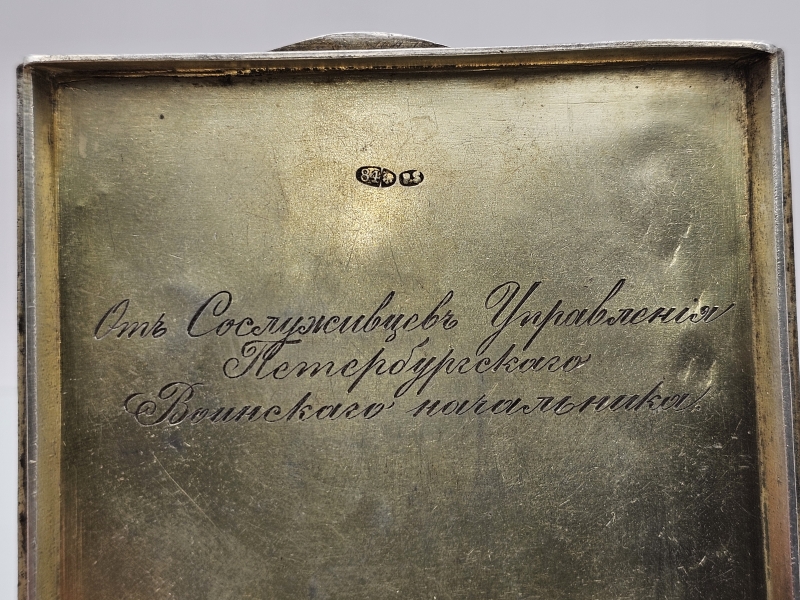 84
Отъ Сослуживцевъ Управленія
Петербургскаго
Воинскаго начальника.